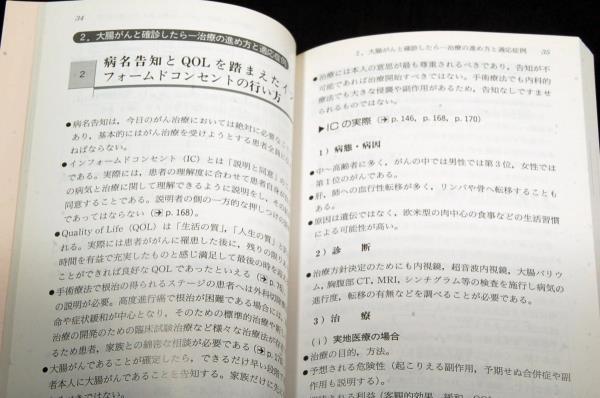 34
2.大腸がんと確診したら―治療の進め方と適応症例
2
病名告知とQOLを踏まえたイン
フォームドコンセントの行い方
●病名告知は,今日のがん治療においては絶対に必要な
あり,基本的にはがん治療を受けようとする患者全員に
ねばならない.
●インフォームドコンセント(IC)とは「説明と同意」の
である.実際には,患者の理解度に合わせて患者自身
の病気と治療に関して理解できるように説明をし,その
同意することである.説明者の側の一方的な押しつけの
であってはならない(p.168).
●Quality of Life(QOL)は「生活の質」,「人生の質」と
れる.実際には患者ががんに罹患した後に,残りの限り
時間を有益で充実したものと感じ満足して最後の時を
ことができれば良好なQOLであったといえる(p.
●手術療法で根治の得られるステージの患者へは外科切除
の説明が必要.高度進行癌で根治が困難である場合には,
命や症状緩和が中心となり,そのための標準的治療や新し
治療の開発のための臨床試験治療など様々な治療法が存在
るため患者,家族との綿密な相談が必要である(p.
●大腸がんであることが確定したら,できるだけ早い段階で
者本人に大腸がんであることを告知する.家族だけに先に
るべきではない.
2.大腸がんと確診したら―治療の進め方と適応症例 35
●治療には本人の意思が最も尊重されるべきであり,告知が不
可能であれば治療開始すべきではない.手術療法でも内科的
療法でも大きな侵襲や副作用があるため,告知なしですませ
られるものではない.
▶ICの実際(p.146, p.168, p.170)
1)病態・病因
●中~高齢者に多く,がんの中では男性では第3位,女性では
第1位のがんである.
●肝,肺への血行性転移が多く,リンパや骨へ転移することも
ある.
●原因は遺伝ではなく,欧米型の肉中心の食事などの生活習慣
による可能性が高い.
2)診 断
●治療方針決定のためにも内視鏡,超音波内視鏡,大腸バリウ
ム,胸腹部CT,MRI,シンチグラム等の検査を施行し病気の
進行度,転移の有無などを調べることが必要である.
3)治 療
(i)実地医療の場合
●治療の目的,方法.
●予想される危険性(起こりえる副作用,予期せぬ合併症や副
作用も説明する).
される利益(客観的効果,緩和,QO